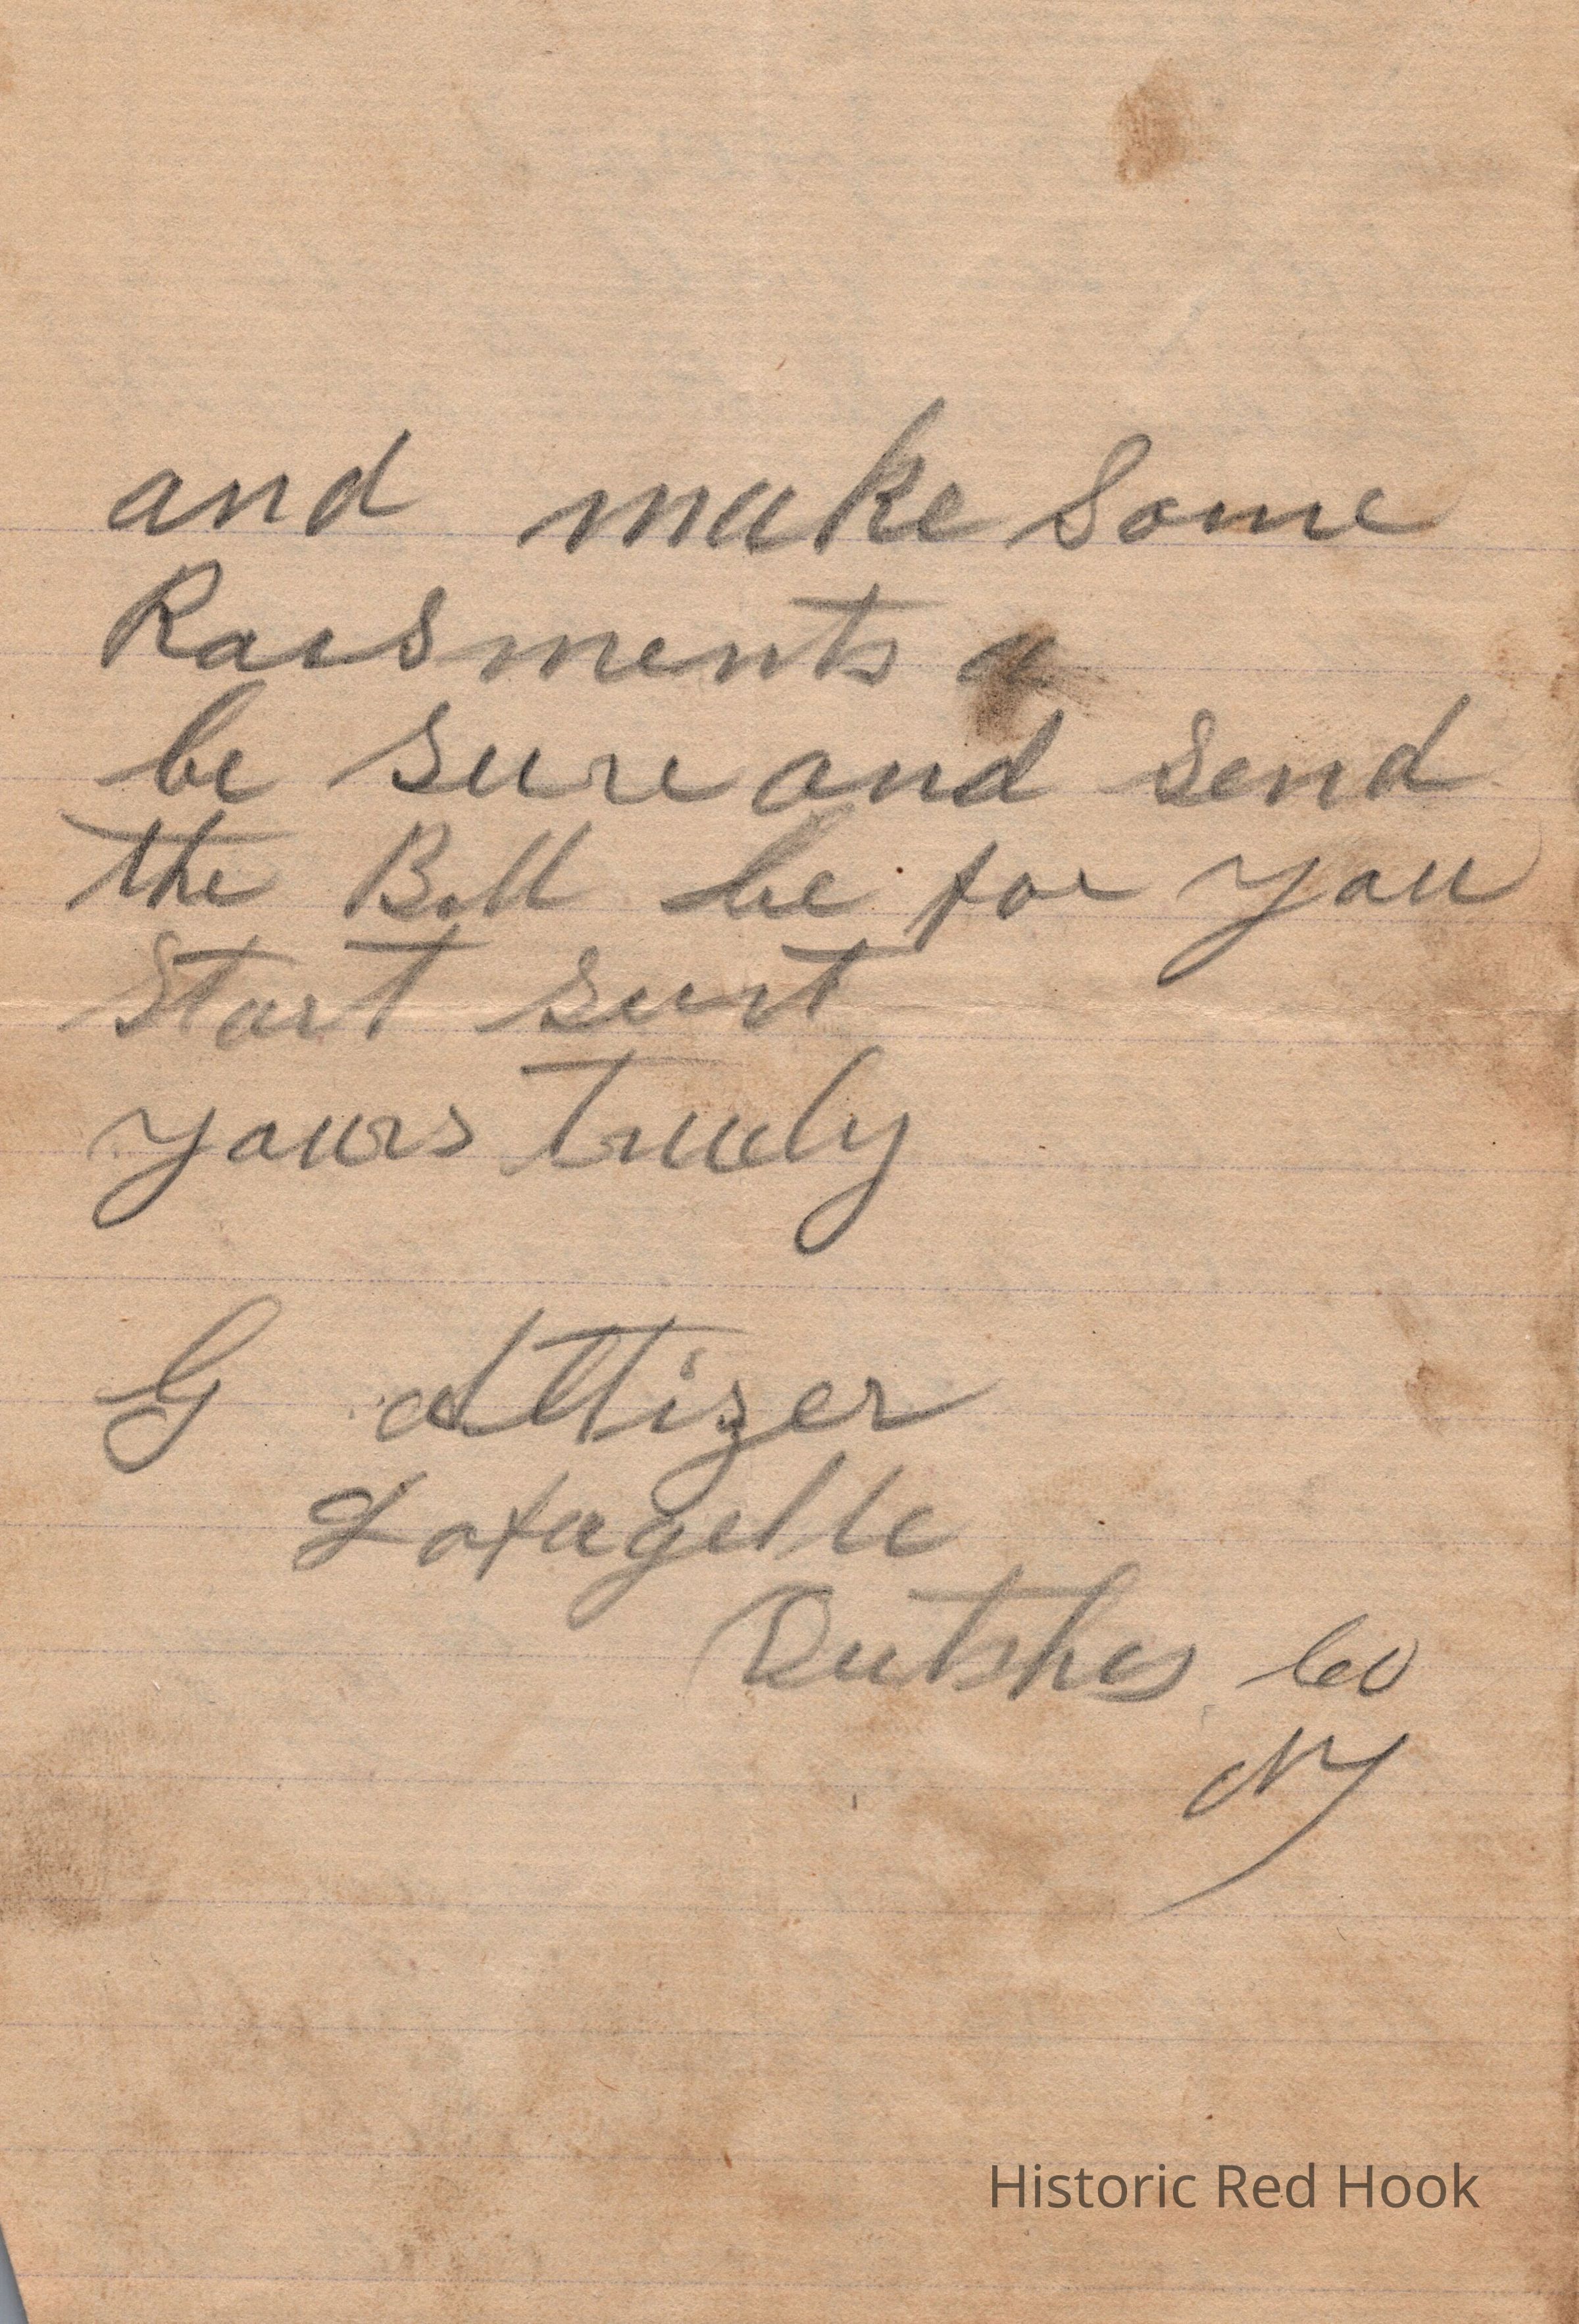 and make Some
Raisments a
be Sure and Send
the Bill be for you
Start Surt
yours truely
G Attizer
Lafayette
Dutshes Co
NY
Historic Red Hook